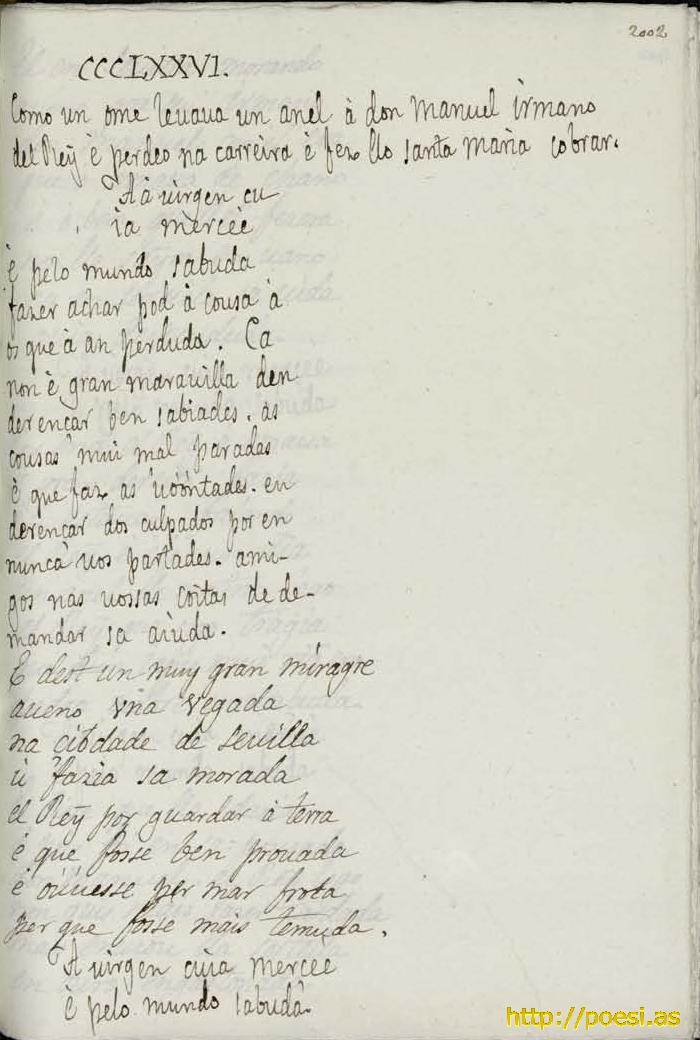 2002
CCCLXXVI.
Como un ome leuaua un anel à don Manuel irmano
del Reÿ è perdeo na carreira è fez llo santa maria cobrar.
A à uirgen cu
ia merceè
è pelo mundo sabuda
fazer achar pod à cousa à
os que à an perduda. Ca
non è gran marauilla den
derençar ben sabiades. as
cousas mui mal paradas
è que faz as uoontades. en
derençar dos culpados por en
nunca uos partades. ami-
gos nas uossas coitas de de-
mandar sa aiuda.
E dest un muy gran miragre
aueno vna vegada
na cibdade de Seuilla
ù fazia sa morada
el Reÿ por guardar à terra
è que fosse ben prouada
è oúuesse per mar frota
per que fosse mais temuda.
A uirgen cuia mercee
è pelo mundo sabuda.
http://poesi.as